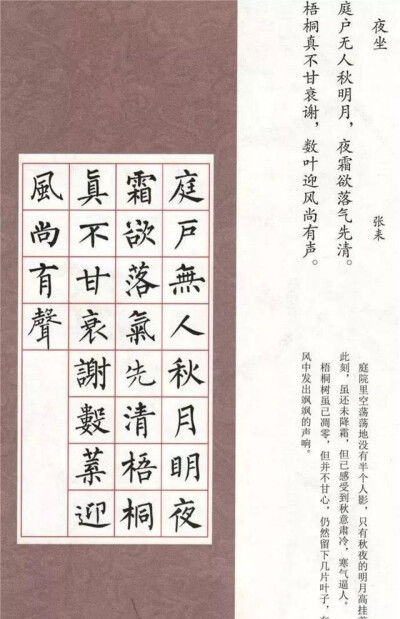 夜坐
张耒
庭户无人秋明月，夜霜欲落气先清。
梧桐真不甘衰谢，数叶迎风尚有声。
庭院里空荡荡地没有半个人影，只有秋夜的明月高挂
此刻，虽还未降霜，但已感受到秋意肃冷，寒气逼人。
梧桐树虽已凋零，但并不甘心，仍然留下几片叶子，
风中发出飒飒的声响。
庭戶無人秋月明夜
霜欲落氣先清梧桐
眞不甘衰謝數葉迎
風尚有聲